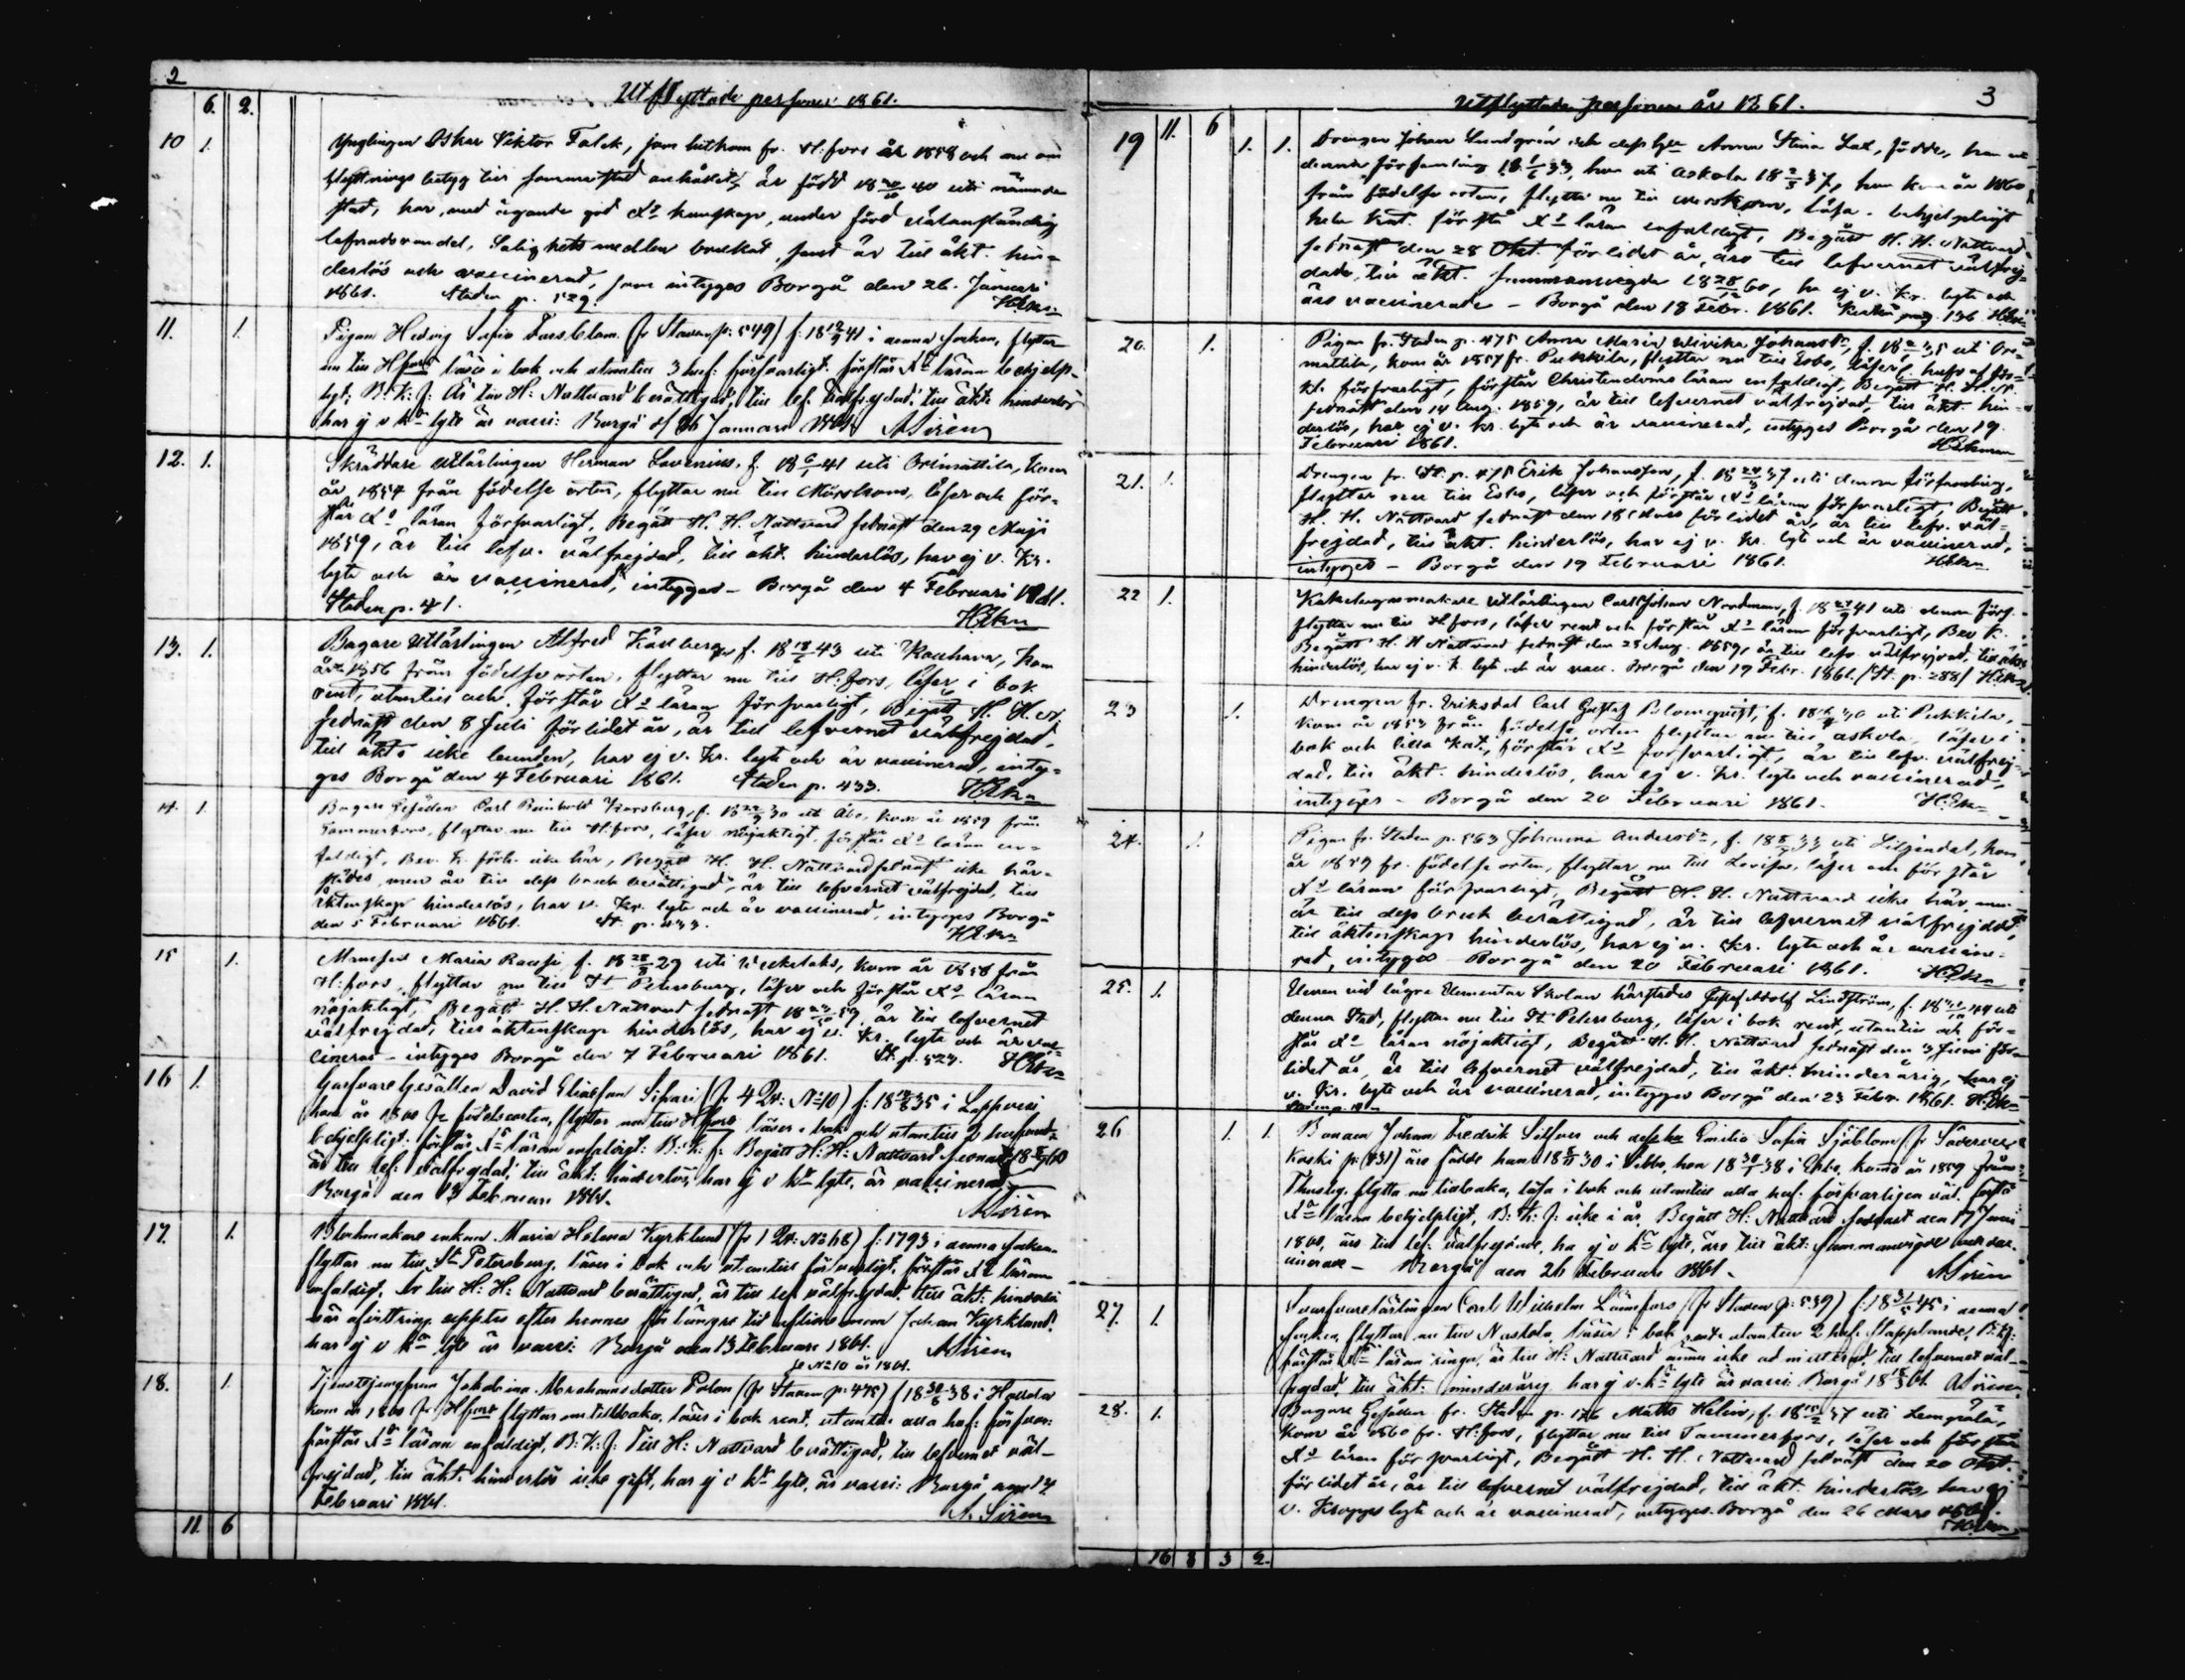 2
Utflyttade personer 1861.
6. 2.
10 1. Ynglingen Oskar Viktor Falck, som hitkom fr. H:fors år 1858 och nu om
flyttnings betyg till sammastad anhållit, är född 18 40 uti nämnde
stad, har, med ägande god Xd kunskap, under förd välanständig
lefnadsvandel, Salighets medlen brukat, samt är till äkt. hin=
derlös och vaccinerad, som intygas Borgå den 26. Januari
1861. Staden p. 529. HEkn
11. 1. Pigan Hedvig Sofia Forsblom (fr Staden p: 549) f: 18 41 i denna socken, flyttar
nu till Hfors läser i bok och utantill 3 huf: försvarligt. förstår Xd läran behjelp-
ligt, B. K. f: Är till H: Nattvard berättigad, till lef. välfrejdad, till äkt: hinderlös
har ej v kr lyte är vacci: Borgå d 26 Januari 1861 ASirén
12. 1. Skräddare Utlärlingen Herman Lovenius, f. 18 41 uti Orimattila, kom
år 1854 från födelse orten, flyttar nu till Mörskom, läser och för=
står Xd läran försvarligt, Begått H. H. Nattvard sednast den 29 Maji
1859, är till lefv. välfrejdad, till äkt. hinderlös, har ej v. Kr.
lyte och är vaccinerad, intygas - Borgå den 4 Februari 1861.
Staden p. 41. HEkn
13. 1. Bagare Utlärlingen Alfred Karlberg f. 18 43 uti Kauhava, kom
år 1856 från födelse orten, flyttar nu till H:fors, läser i bok
rent, utantill och förstår Xd läran försvarligt, Begått H. H. N.
sednast den 8 Juli förlidet år, är till lefvernet välfrejdad,
till äkt. icke bunden, har ej v. Kr. lyte och är vaccinerad, inty=
gas Borgå den 4 Februari 1861. Staden p. 433. HEkn
14. 1. Bagare Gesällen Carl Reinhold f. 18 30 uti Åbo, kom år 1859 från
Tammerfors, flyttar nu till H:fors, läser nöjaktigt, förstår Xd läran en=
faldigt, Bev. K. förh. icke här, Begått H. H. Nattvard sednast icke här=
städes, men är till dess bruk berättigad, är till lefvernet välfrejdad, till
äktenskap hinderlös, har v. Kr. lyte och är vaccinerad, intygas Borgå
den 5 Februari 1861. St. p. 433. HEkn
15 1. Maria f. 18 29 uti kom år 1858 från
H:fors, flyttar nu till St Petersburg, läser och förstår Xd läran
nöjaktigt, Begått H. H. Nattvard sednast 18 59, är till lefvernet
välfrejdad, till äktenskap hinderlös, har ej v. Kr. lyte och är vac=
cinerad - intygas Borgå den 7 Februari 1861. St. p. 529. HEkn
16 1. Garfvare Gesällen David Eliasson Sihvari (fr 4 Qv: No 10) f: 18 35 i Lappvesi
kom år 1860 fr födelseorten, flyttar nu till Hfors läser i bok och utantill 2
behjelpligt. förstår Xs läran enfaldigt: B: K: f: Begått H: H: Nattvard senast 18 60
är till lef: välfrejdad, till äkt: hinderlös, har ej v kr lyte, är vaccinerad
Borgå den 13 Februari 1861. ASirén
17. 1. Blockmakare enkan Maria Helena Kyrklund (fr 1 Qv: No 68) f: 1793 i denna socken
flyttar nu till St Petersburg, läser i bok och utantill försvarligt, förstår Xd läran
enfaldigt. Är till H: H: Nattvard berättigad, är till lef välfrejdad, till äkt: hinderlös
när afvittring uppstår efter hennes för längre tid aflidne man Johan Kyrklund,
har ej v kr lyte är vacci: Borgå den 13 Februari 1861. ASirén
se No 10 år 1861.
18. 1. Tjenstejungfrun Jakobina Abrahamsdotter Polon (fr Staden p: 475) f 18 38 i Hollola
kom år 1860 fr Hfors flyttar nu tillbaka, läser i bok rent, utantill alla huf: försvar:
förstår Xd läran enfaldigt, B: K: f: Till H: Nattvard berättigad, till lefvernet väl-
frejdad, till äkt: hinderlös icke gift, har ej v kr lyte, är vacci: Borgå den 14
Februari 1861. A. Sirén
11 6
Utflyttade personer år 1861. 3
11. 6
19 1. 1. Drengen Johan Lundgrén och dess hu Anna Stina Lax, födde, han uti
denna församling 18 33, hon uti Askola 18 37, hon kom år 1860
från födelse orten, flytta nu till Mörskom, läsa behjelpligt
hela kat. förstå Xd läran enfaldigt, Begått H. H. Nattvard
sednast den 28 Okt. förlidet år, äro till lefvernet välfrej=
dade, till äkt. sammanvigde 18 60, ha ej v. kr. lyte och
äro vaccinerade - Borgå den 18 Febr. 1861. pag. 136 HEkn
20. 1. Pigan fr. Staden p. 475 Anna Maria Ulrika Johansdr, f. 18 35 uti Ori=
mattila, kom år 1857 fr. Pukkila, flyttar nu till Esbo, läser
kt. försvarligt, förstår Christendoms läran enfaldigt, Begått H. H. N.
sednast den 14 Aug. 1859, är till lefvernet välfrejdad, till äkt. hin=
derlös, har ej v. kr. lyte och är vaccinerad, intygas Borgå den 19
Februari 1861. HEkman
21. 1. Drengen fr. St. p. 475 Erik Johansson, f. 18 37 uti denna församling,
flyttar nu till Esbo, läser och förstår Xd läran försvarligt, Begått
H. H. Nattvard sednast den 18 Mars förlidet år, är till lefv. väl=
frejdad, till äkt. hinderlös, har ej v. kr. lyte och är vaccinerad,
intygas - Borgå den 19 Februari 1861. HEkn
22 1. Kakelugnsmakare Utlärlingen Carl Johan Nordman, f. 18 41 uti denna förs.
flyttar nu till Hfors, läser rent och förstår Xd läran försvarligt, Bev. K.
Begått H. H. Nattvard sednast den 28 Aug. 1859, är till lefv. välfrejdad, till äkt.
hinderlös, har ej v. k. lyte och är vacc. Borgå den 19 Febr. 1861. (St. p. 288) HEkn
23 1. Drengen fr. Eriksdal Carl Gustaf Blomqvist, f. 18 40 uti Pukkila,
kom år 1853 från födelse orten flyttar nu till Askola, läser i
bok och lilla kat., förstår Xd försvarligt, är till lefv. välfrej=
dad, till äkt. hinderlös, har ej v. kr. lyte och vaccinerad,
intygas - Borgå den 20 Februari 1861. HEkn
24. 1. Pigan fr. Staden p. 563 Johanna Andersdr, f. 18 33 uti Liljendal, kom
år 1859 fr. födelse orten, flyttar nu till Lovisa, läser och förstår
Xd läran försvarligt, Begått H. H. Nattvard icke här, men
är till dess bruk berättigad, är till lefvernet välfrejdad,
till äktenskap hinderlös, har ej v. Kr. lyte och är vaccine=
rad, intygas - Borgå den 20 Februari 1861. HEkn
25. 1. Eleven vid lägre Elementar Skolan härstädes Gustaf Adolf Lindström, f. 18 44 uti
denna stad, flyttar nu till St Petersburg, läser i bok rent, utantill och för=
står Xd läran nöjaktigt, Begått H. H. Nattvard sednast den 3 Juni för=
lidet år, är till lefvernet välfrejdad, till äkt. minderårig, har ej
v. Kr. lyte och är vaccinerad, intygas Borgå den 23 Febr. 1861. HEkn
26 1. 1. Bonden Johan Fredrik Silfver och dess hu Emilia Sofia Sjöblom (fr
koski p: 431) äro födde han 18 30 i Sibbo, hon 18 38 i Esbo, komo år 1859 från
Thusby, flytta nu tillbaka, läsa i bok och utantill alla huf. försvarligen väl. förstå
Xd läran behjelpligt, B: K: f: icke i år, Begått H: Nattvard sednast den 17 Juni
1860, äro till lef: välfrejdade, ha ej v kr lyte, äro till äkt: sammanvigde och vac-
cinerade - Borgå den 26 Februari 1861. ASirén
27. 1. Svarfvarelärlingen Carl Wilhelm Lönnfors (fr Staden p: 539) f: 18 45 i denna
socken, flyttar nu till Nastola, läser i bok rent utantill 2 huf. stapplande, B: K f:
förstår Xd läran ringa, är till H: Nattvard ännu icke admitterad, till lefvernet väl-
frejdad, till äkt: minderårig har ej v. kr lyte är vacci: Borgå 18 61. ASirén
28. 1. Bagare Gesällen fr. Staden p. 176 Matts Helin, f. 18 37 uti Lempäälä,
kom år 1860 fr. H:fors, flyttar nu till Tammerfors, läser och förstår
Xd läran försvarligt, Begått H. H. Nattvard sednast den 20 Okt.
förlidet år, är till lefvernet välfrejdad, till äkt. hinderlös, har ej
v. Kropps lyte och är vaccinerad, intygas. Borgå den 26 Mars 1861.
HEkn
16 8 3 2.